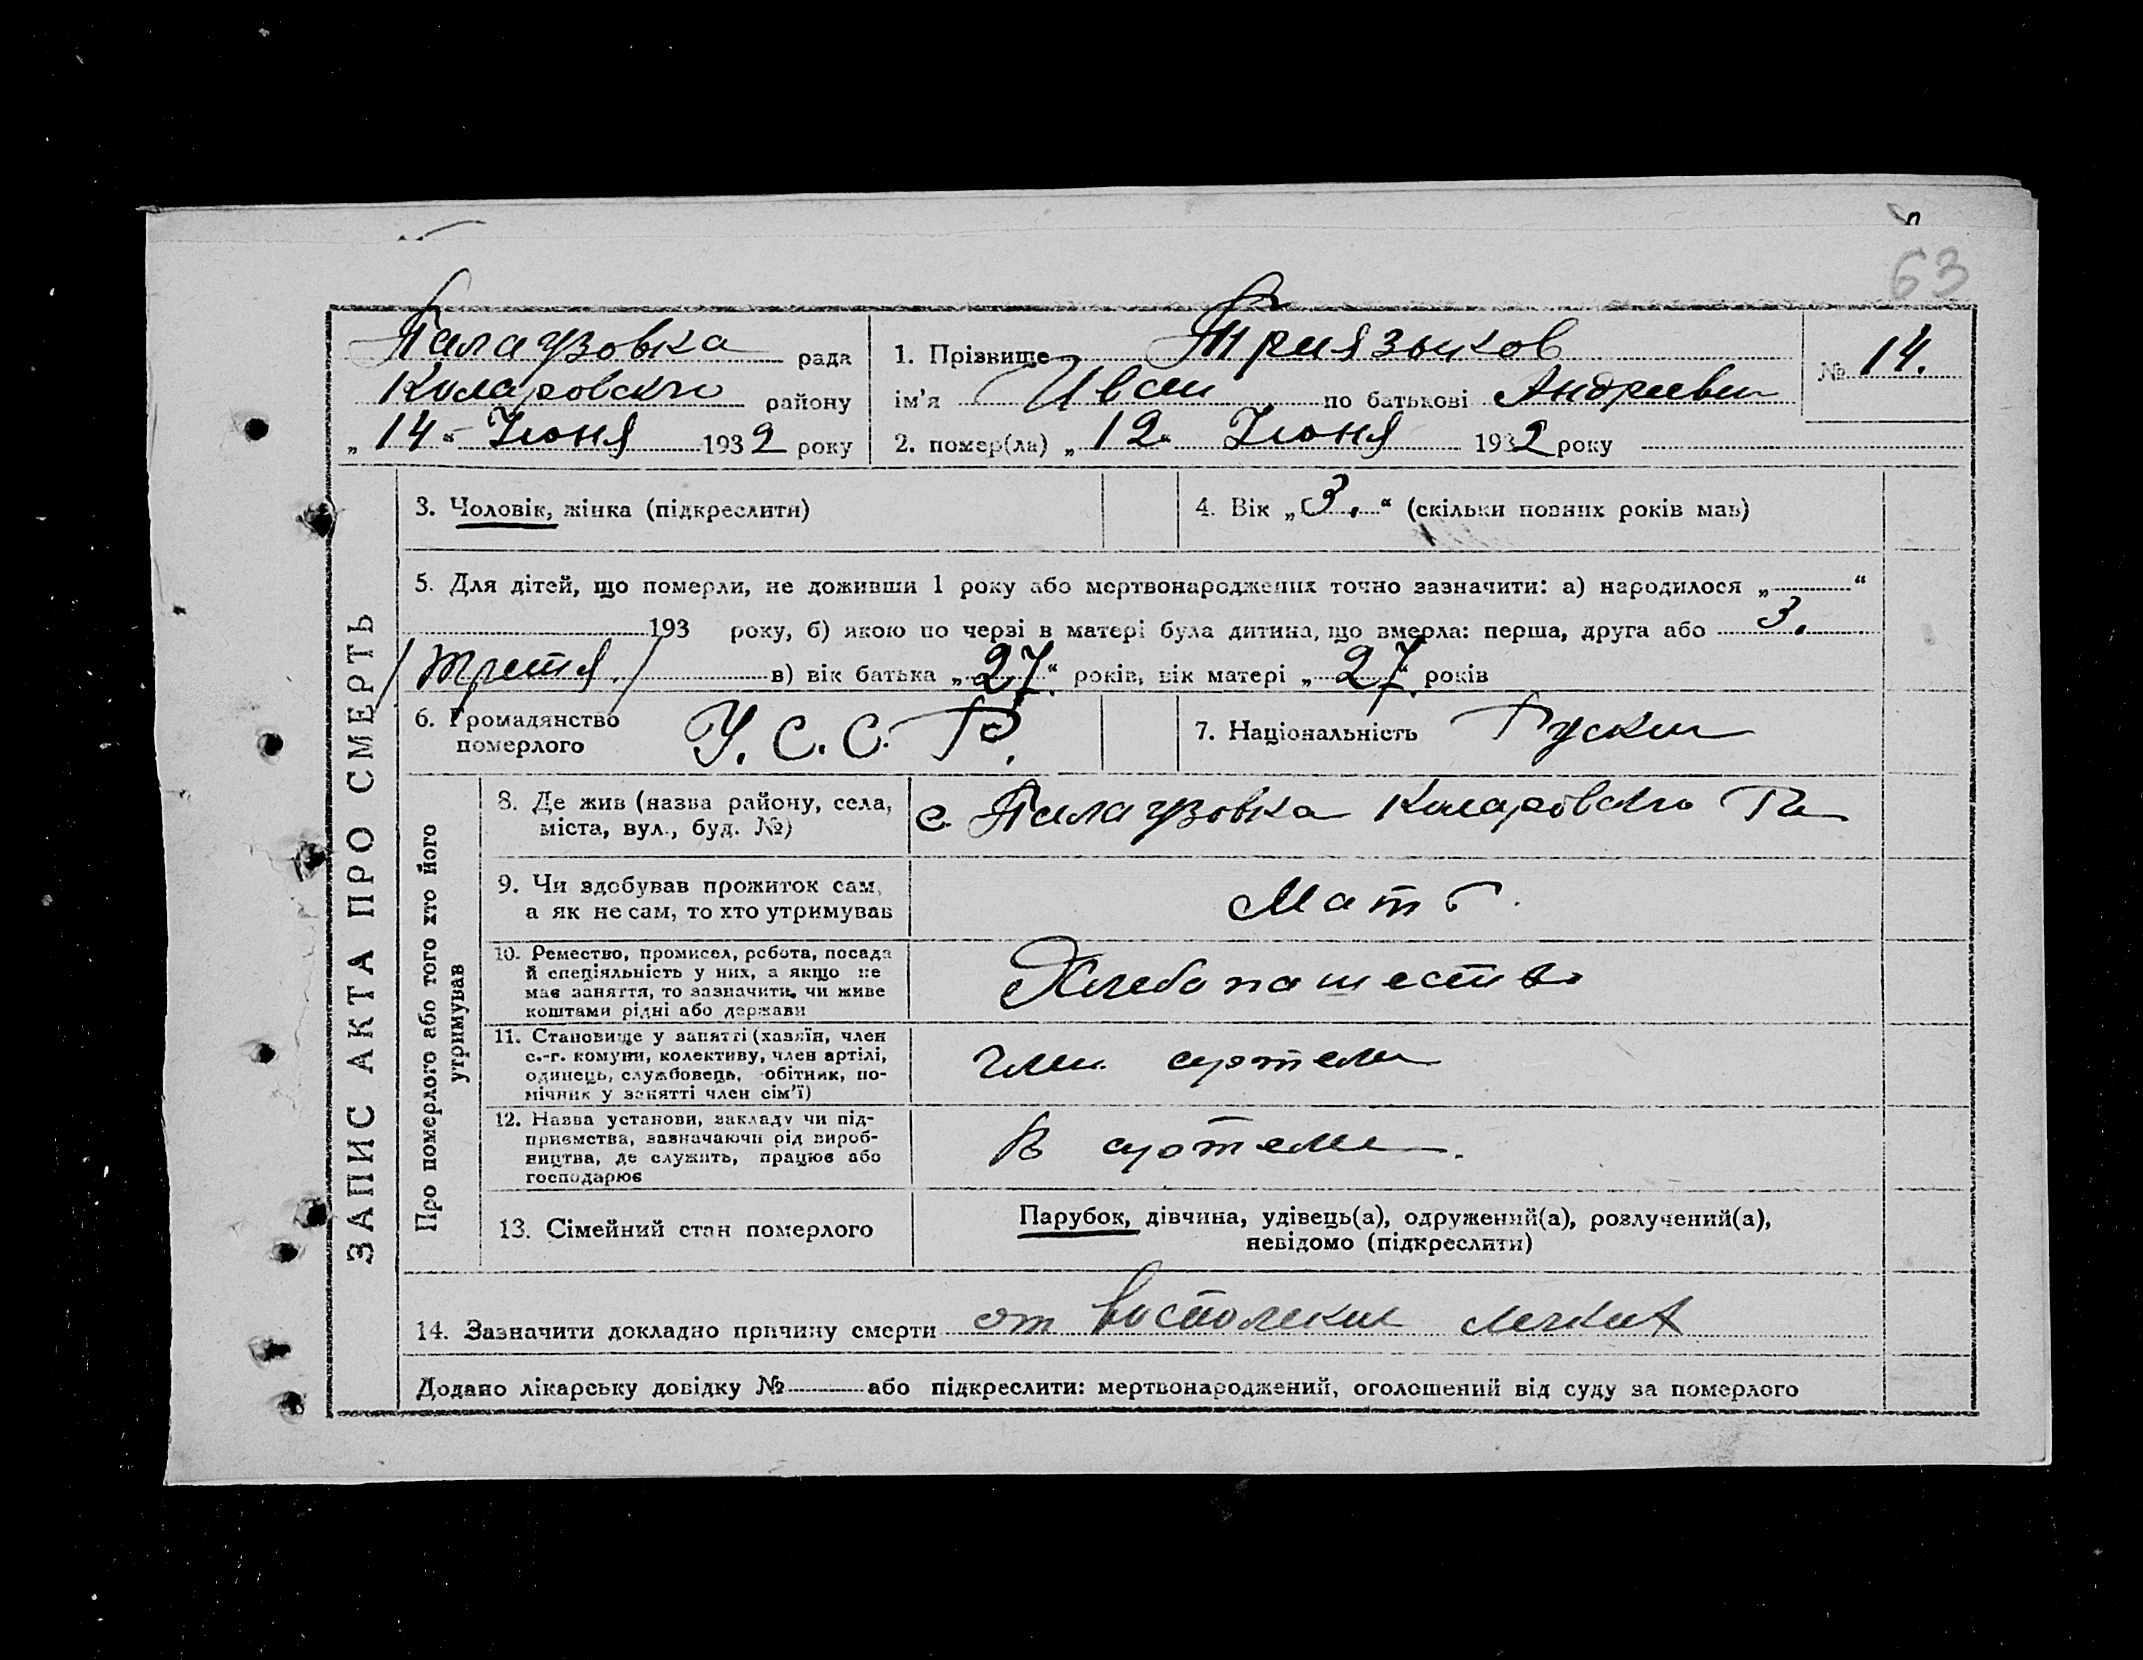 63
Палаузовка рада
Коларовского району
„14“ Июня 1932 року
1. Прізвище Триязыков
ім’я Иван по батькові Андреевич
№ 14.
2. помер(ла) „12“ Июня 1932 року
ЗАПИС АКТА ПРО СМЕРТЬ
3. Чоловік, жінка (підкреслити)
4. Вік „3.“ (скільки повних років мав)
5. Для дітей, що померли, не доживши 1 року або мертвонароджених точно зазначити: а) народилося „ “
193 року, б) якою по черзі в матері була дитина, що вмерла: перша, друга або 3.
/третя./ в) вік батька „27“ років, вік матері „27“ років
6. Громадянство
померлого
У.С.С.Р.
7. Національність Руский
Про померлого або того хто його
утримував
8. Де жив (назва району, села,
міста, вул., буд. №)
с. Палаузовка Коларовского Ра
9. Чи здобував прожиток сам,
а як не сам, то хто утримував
Мать.
10. Ремество, промисел, робота, посада
й спеціяльність у них, а якщо не
має заняття, то зазначити, чи живе
коштами рідні або держави
Хлебопашество
11. Становище у занятті (хазяїн, член
с.-г. комуни, колективу, член артілі,
одинець, службовець, обітник, по-
мічник у занятті член сім’ї)
член артели
12. Назва установи, закладу чи під-
приємства, зазначаючи рід вироб-
ництва, де служить, працює або
господарює
В артели.
13. Сімейний стан померлого
Парубок, дівчина, удівець(а), одружений(а), розлучений(а),
невідомо (підкреслити)
14. Зазначити докладно причину смерти от воспаления легких
Додано лікарську довідку № або підкреслити: мертвонароджений, оголошений від суду за померлого